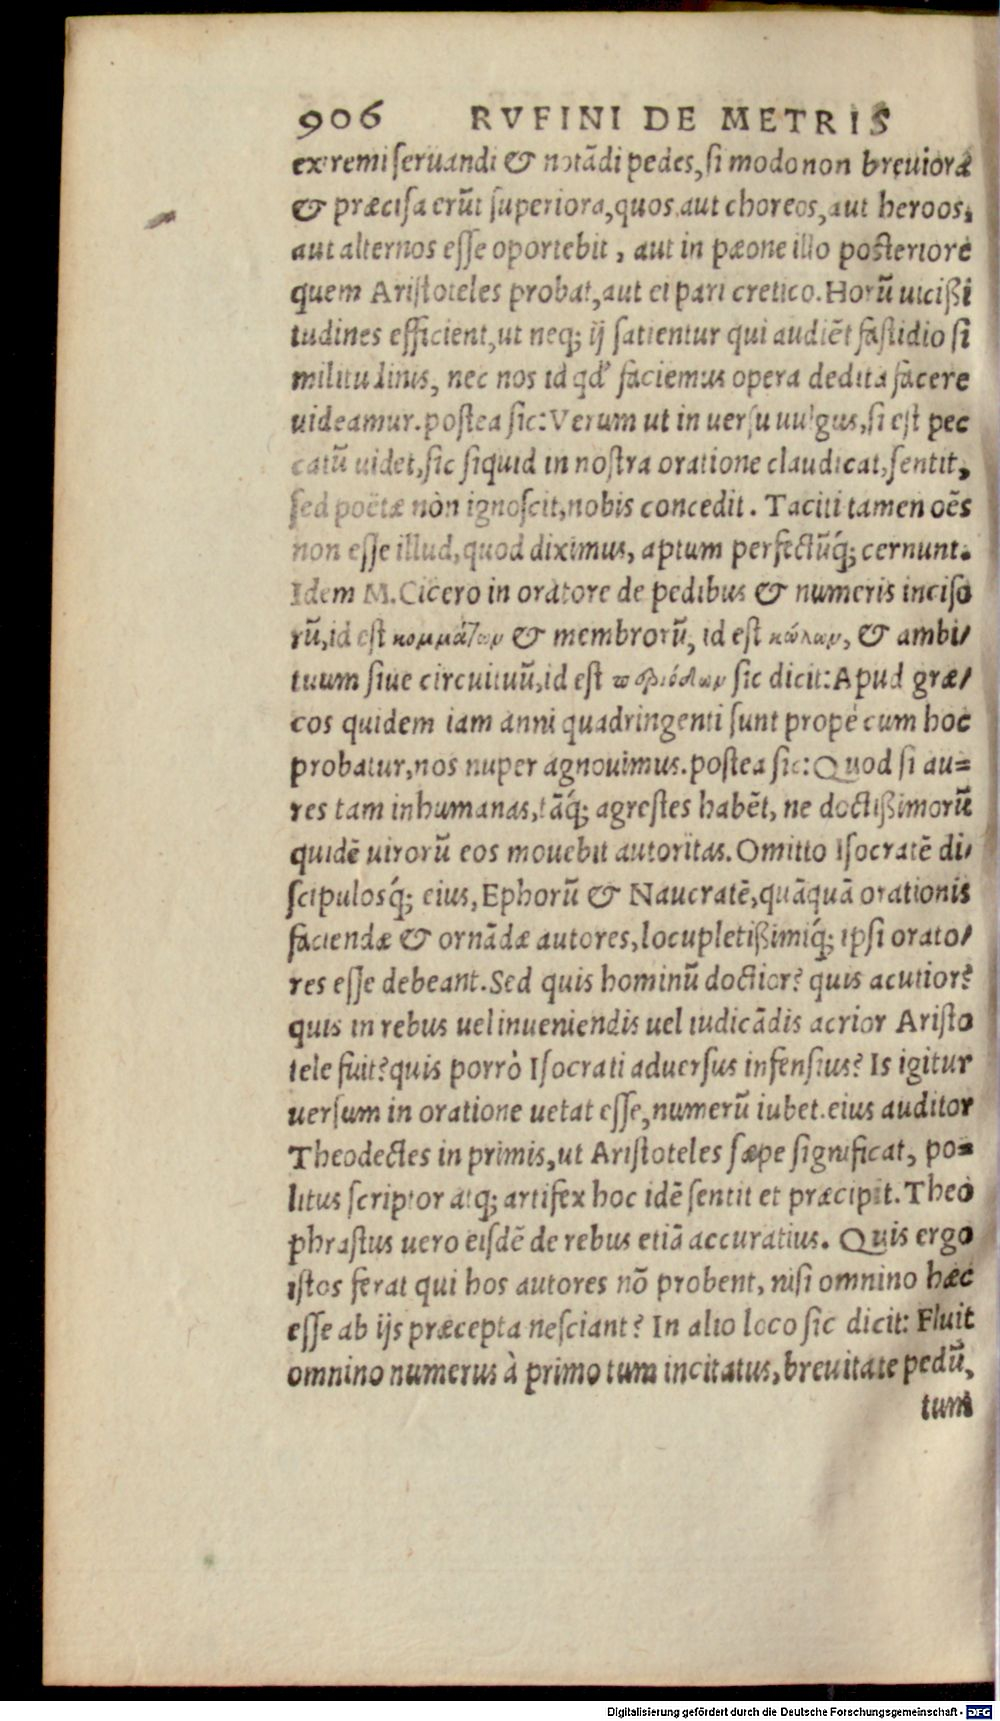 906 RVFINI DE METRIS
extremi seruandi & notādi pedes, si modo non breuiora
& præcisa erūt superiora, quos aut choreos, aut heroos,
aut alternos esse oportebit, aut in pæone illo posteriore
quem Aristoteles probat, aut ei pari cretico. Horū uicißi
tudines efficient, ut neq; ij satientur qui audiēt fastidio si
militudinis, nec nos id qd' faciemus opera dedita facere
uideamur. postea sic: Verum ut in uersu uulgus, si est pec
catū uidet, sic siquid in nostra oratione claudicat, sentit,
sed poëtæ non ignoscit, nobis concedit. Taciti tamen oēs
non esse illud, quod diximus, aptum perfectūq́; cernunt.
Idem M. Cicero in oratore de pedibus & numeris inciso
rū, id est κομμάτων & membrorū, id est κώλων, & ambi/
tuum siue circuituū, id est περιόδων sic dicit: Apud græ/
cos quidem iam anni quadringenti sunt propè cum hoc
probatur, nos nuper agnouimus. postea sic: Quod si au=
res tam inhumanas, tāq́; agrestes habēt, ne doctißimorū
quidē uirorū eos mouebit autoritas. Omitto Isocratē di/
scipulosq́; eius, Ephorū & Naucratē, quāquā orationis
faciendæ & ornādæ autores, locupletißimiq́; ipsi orato/
res esse debeant. Sed quis hominū doctior? quis acutior?
quis in rebus uel inueniendis uel iudicādis acrior Aristo
tele fuit? quis porrò Isocrati aduersus infensius? Is igitur
uersum in oratione uetat esse, numerū iubet. eius auditor
Theodectes in primis, ut Aristoteles sæpe significat, po=
litus scriptor atq; artifex hoc idē sentit et præcipit. Theo
phrastus uero eisdē de rebus etiā accuratius. Quis ergo
istos ferat qui hos autores nō probent, nisi omnino hæc
esse ab ijs præcepta nesciant? In alio loco sic dicit: Fluit
omnino numerus à primo tum incitatus, breuitate pedū,
tum
Digitalisierung gefördert durch die Deutsche Forschungsgemeinschaft - DFG